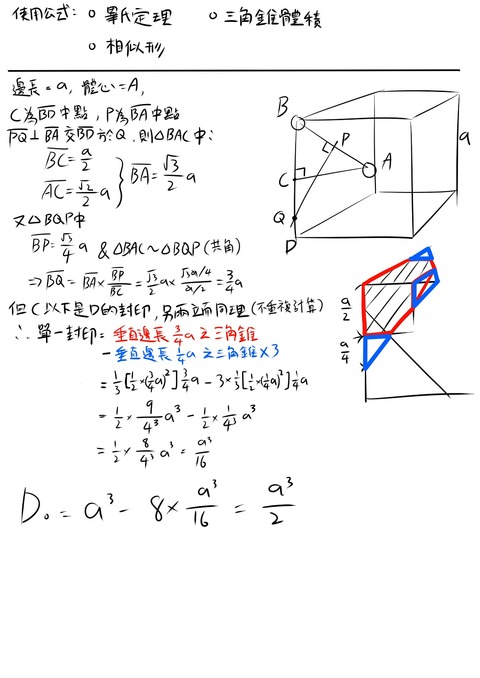 使用公式: ○ 畢氏定理 ○ 三角錐體積
○ 相似形
邊長=a, 體心=A,
C為BD中點, P為BA中點
PQ⊥BA交BD於Q, 則△BAC中:
BC=a/2
AC=√2/2 a } BA=√3/2 a
又△BQP中
BP=√3/4 a & △BAC~△BQP (共角)
⇒BQ=BA×BP/BC=√3/2 a×(√3a/4)/(a/2)=3/4 a
但C以下是D的封印, 另兩立面同理(不重複計算)
∴ 單一封印=垂直邊長3/4a之三角錐
-垂直邊長1/4a之三角錐×3
=1/3[1/2×(3/4a)²]3/4a-3×1/3[1/2×(1/4a)²]1/4a
=1/2×9/4³a³-1/2×1/4³a³
=1/2×8/4³a³=a³/16
D。=a³-8×a³/16=a³/2
B
P
A
C
Q
D
a
a/2
a/4